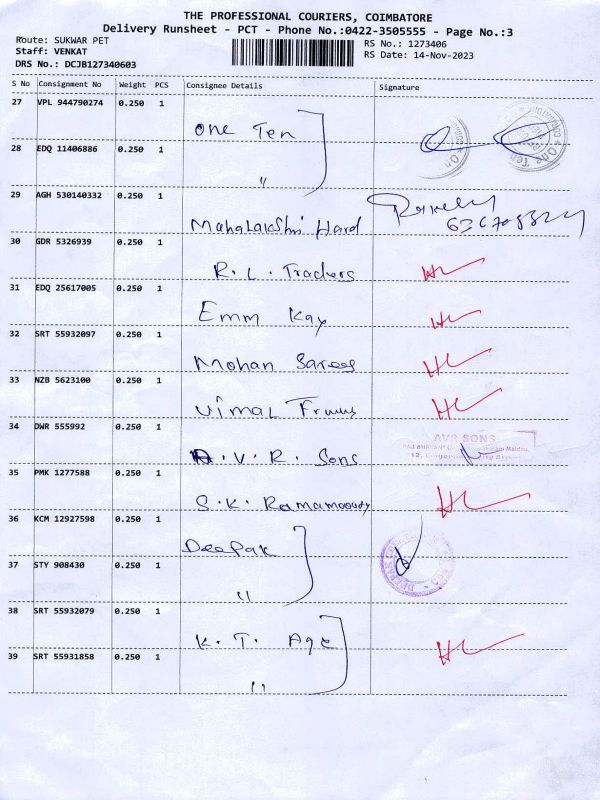 THE PROFESSIONAL COURIERS, COIMBATORE
Delivery Runsheet - PCT - Phone No.:0422-3505555 - Page No.:3
Route: SUKWAR PET
Staff: VENKAT
DRS No.: DCJB127340603
RS No.: 1273406
RS Date: 14-Nov-2023
S No Consignment No Weight PCS Consignee Details Signature
27 VPL 944790274 0.250 1 One Ten
28 EDQ 11406886 0.250 1 "
One Ten
29 AGH 530140332 0.250 1 Mahalakshmi Hard
30 GDR 5326939 0.250 1 R. L. Traders
31 EDQ 25617005 0.250 1 Emm Kay
32 SRT 55932097 0.250 1 Mohan Sarees
33 NZB 5623100 0.250 1 Vimal
34 DWR 555992 0.250 1 A. V. R. Sons
AVR SONS
35 PMK 1277588 0.250 1 S. K.
36 KCM 12927598 0.250 1 Deepak
37 STY 908430 0.250 1 "
38 SRT 55932079 0.250 1 K. T. Age
39 SRT 55931858 0.250 1 "